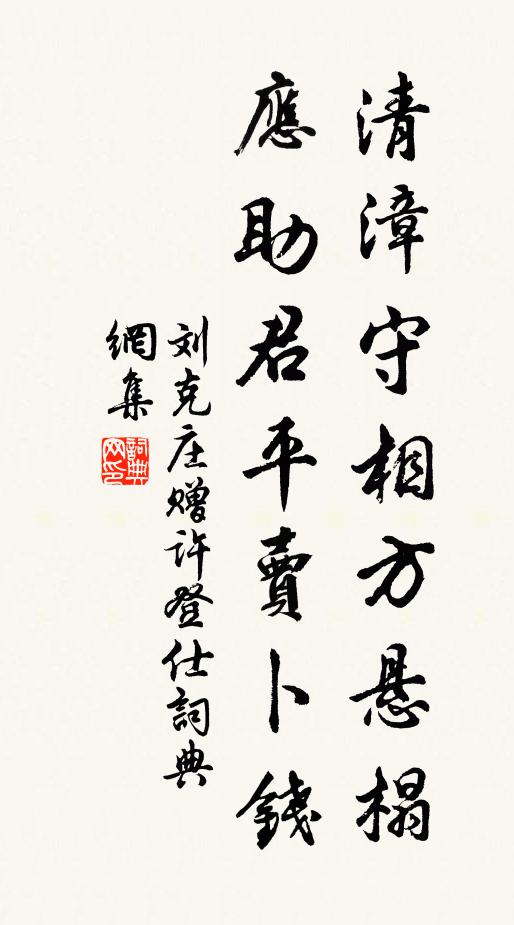 清漳守相方悬榻
應助君平賣卜錢
刘克庄赠许登仕詞典
網集
詞典
网印